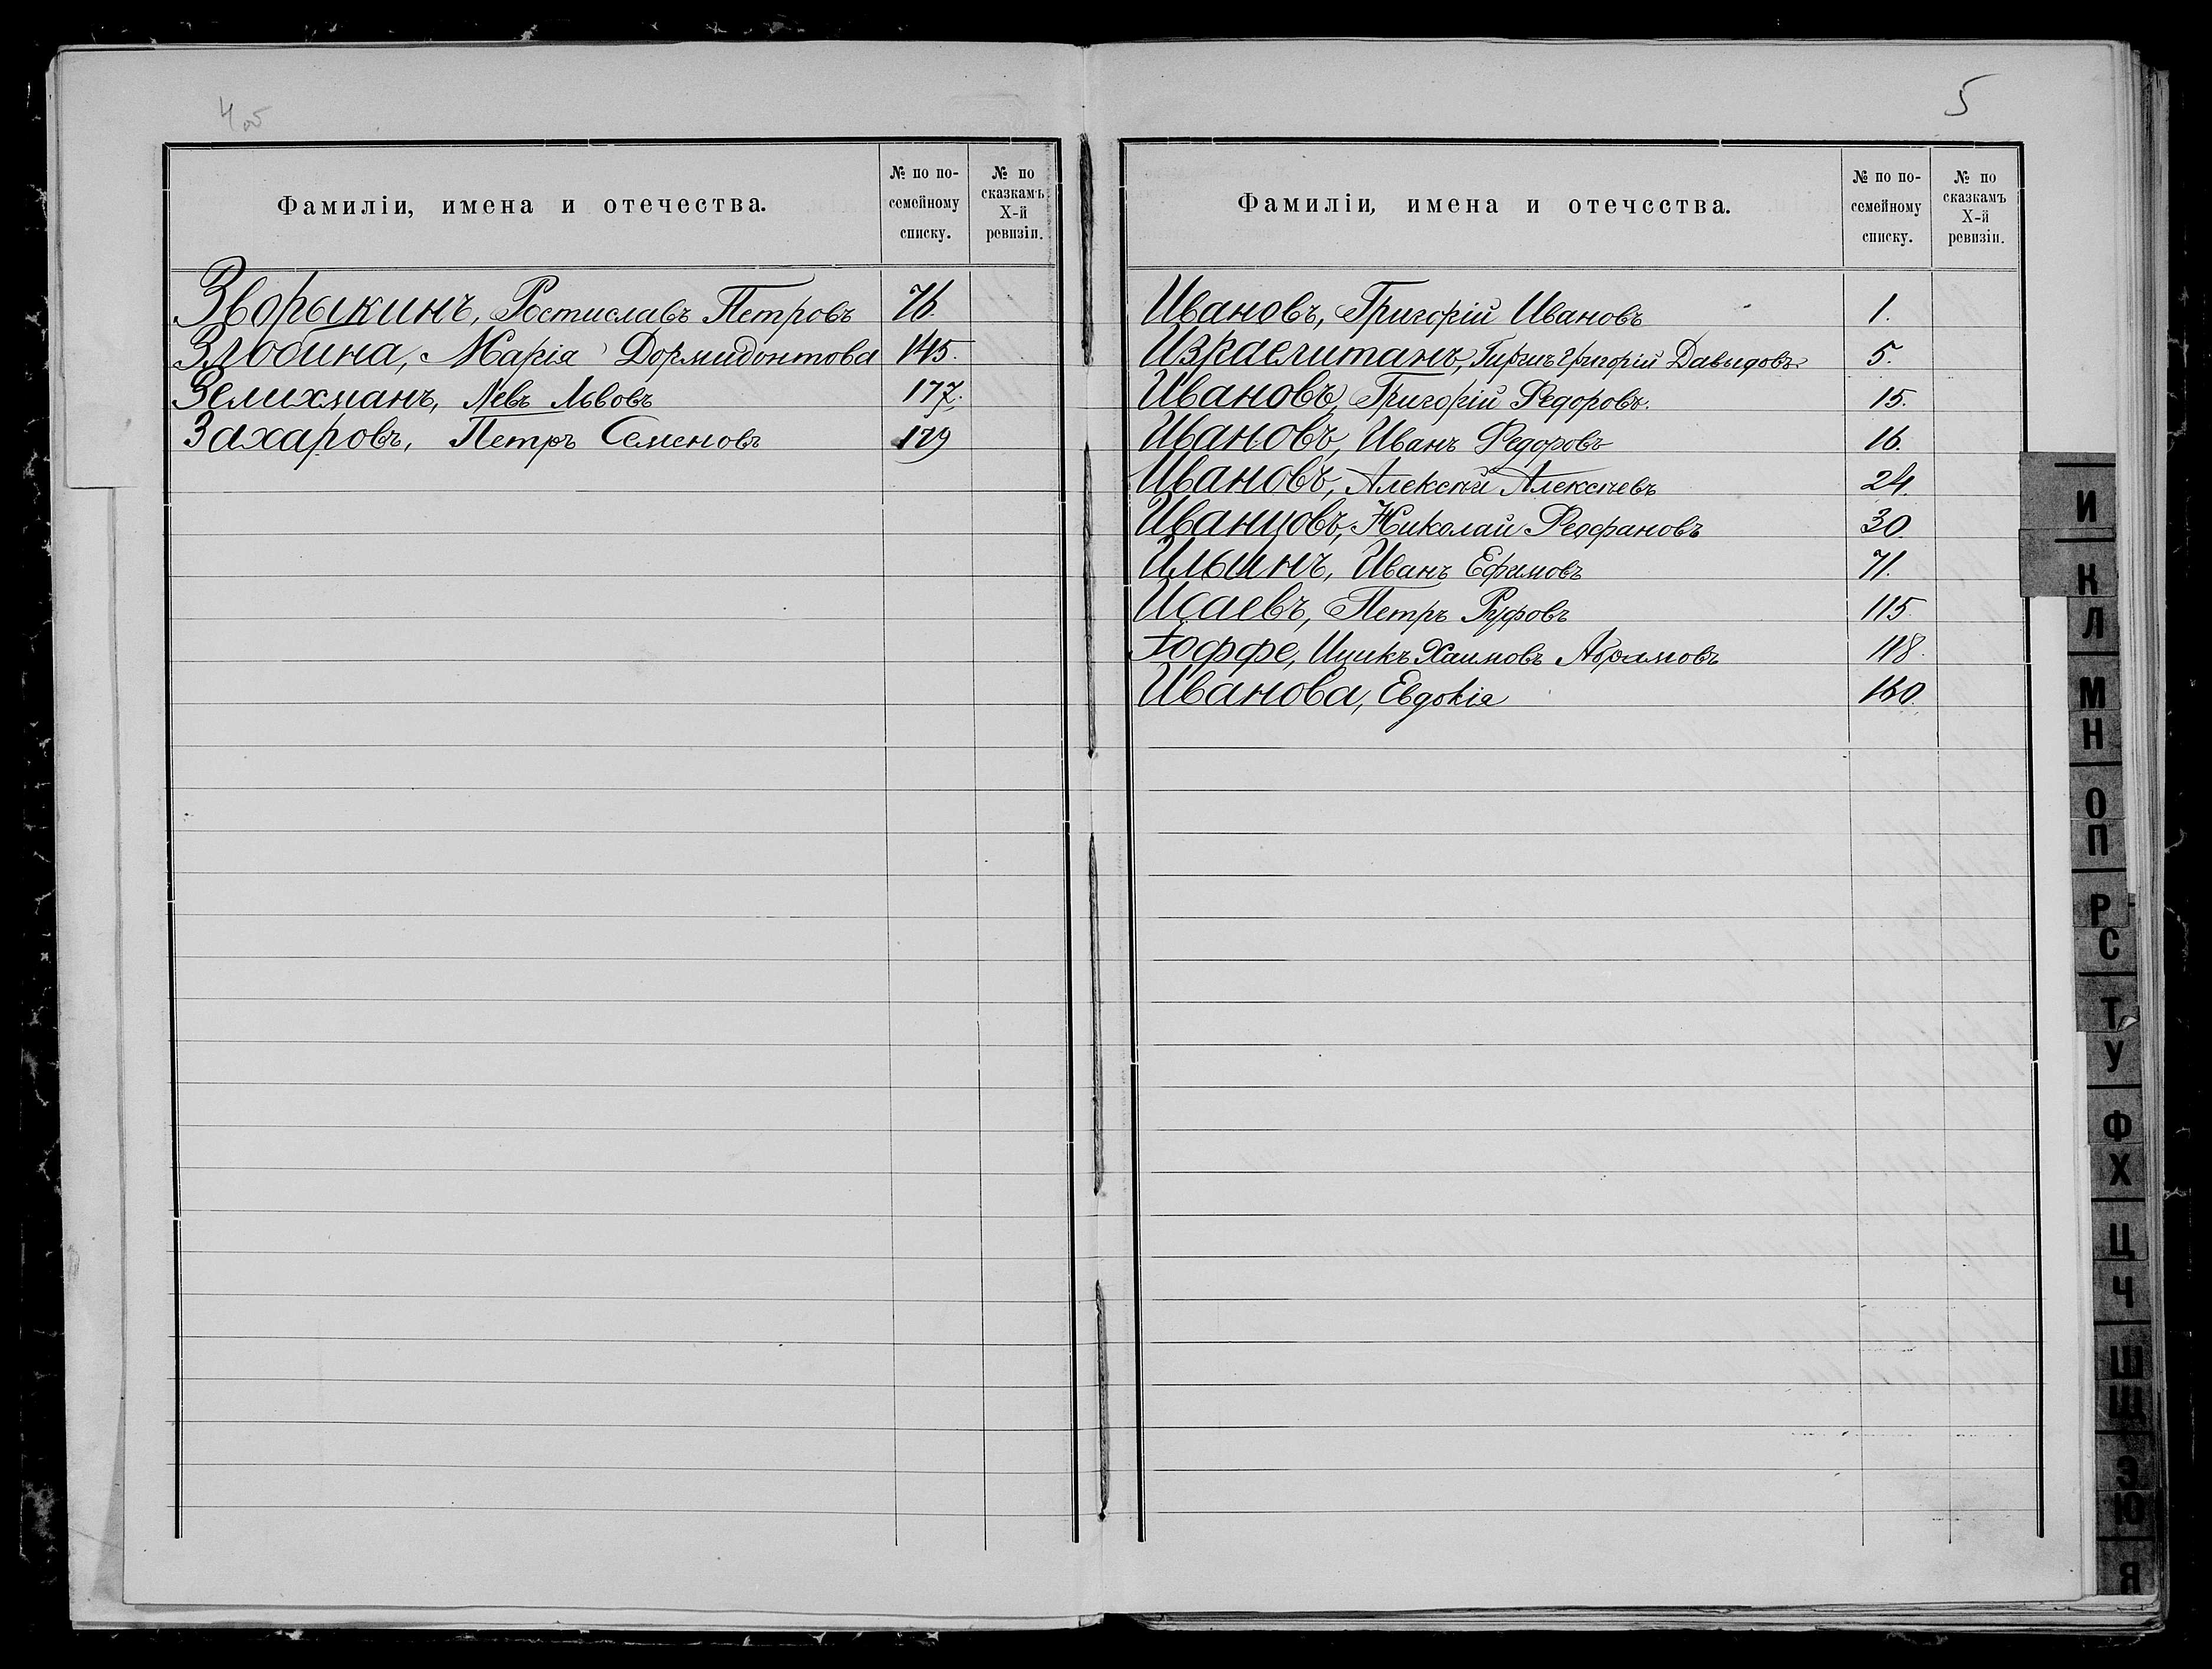 4об
Фамиліи, имена и отечества.
№ по по-
семейному
списку.
№ по
сказкамъ
X-й
ревизіи.
Зворыкинъ, Ростиславъ Петровъ 76.
Злобина, Марія Дормидонтова 145.
Зелихманъ, Левъ Львовъ 177.
Захаровъ, Петръ Семеновъ 179
5
Фамиліи, имена и отечества.
№ по по-
семейному
списку.
№ по
сказкамъ
X-й
ревизіи.
Ивановъ, Григорій Ивановъ 1.
Израелитанъ, Гиршъ Григорій Давыдовъ 5.
Ивановъ, Григорій Федоровъ. 15.
Ивановъ, Иванъ Федоровъ 16.
Ивановъ, Алексѣй Алексѣевъ 24.
Иванцовъ, Николай Феофановъ 30.
Ильинъ, Иванъ Ефимовъ 71.
Исаевъ, Петръ Руфовъ 115.
Іоффе, Ицикъ Хаимовъ Абрамовъ 118.
Иванова, Евдокія 160.
И
К
Л
М
Н
О
П
Р
С
Т
У
Ф
Х
Ц
Ч
Ш
Щ
Э
Ю
Я